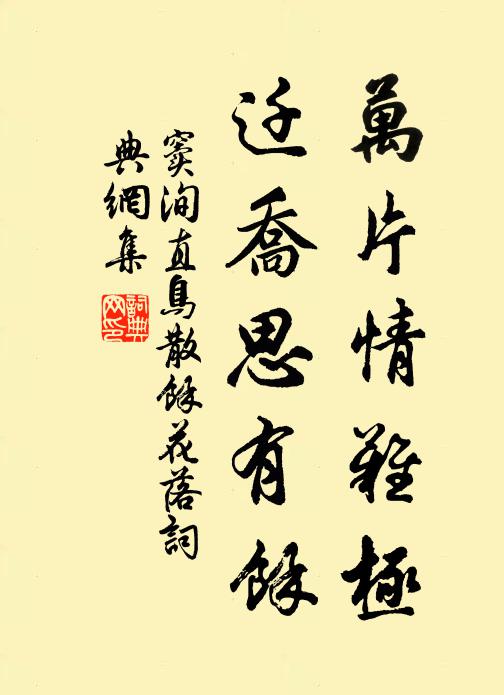 萬片情難極
迁喬思有餘
竇洵直鳥散餘花落詞
典網集
詞典
网印